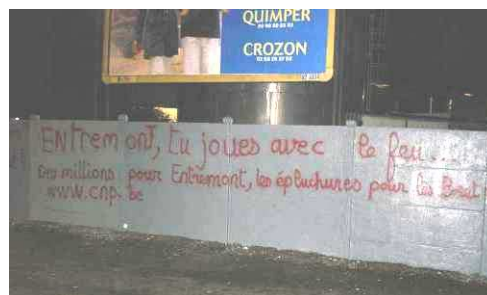 QUIMPER
CROZON
Entremont, tu joues avec le feu...
Des millions pour Entremont, les épluchures pour les
www.cnp-.be